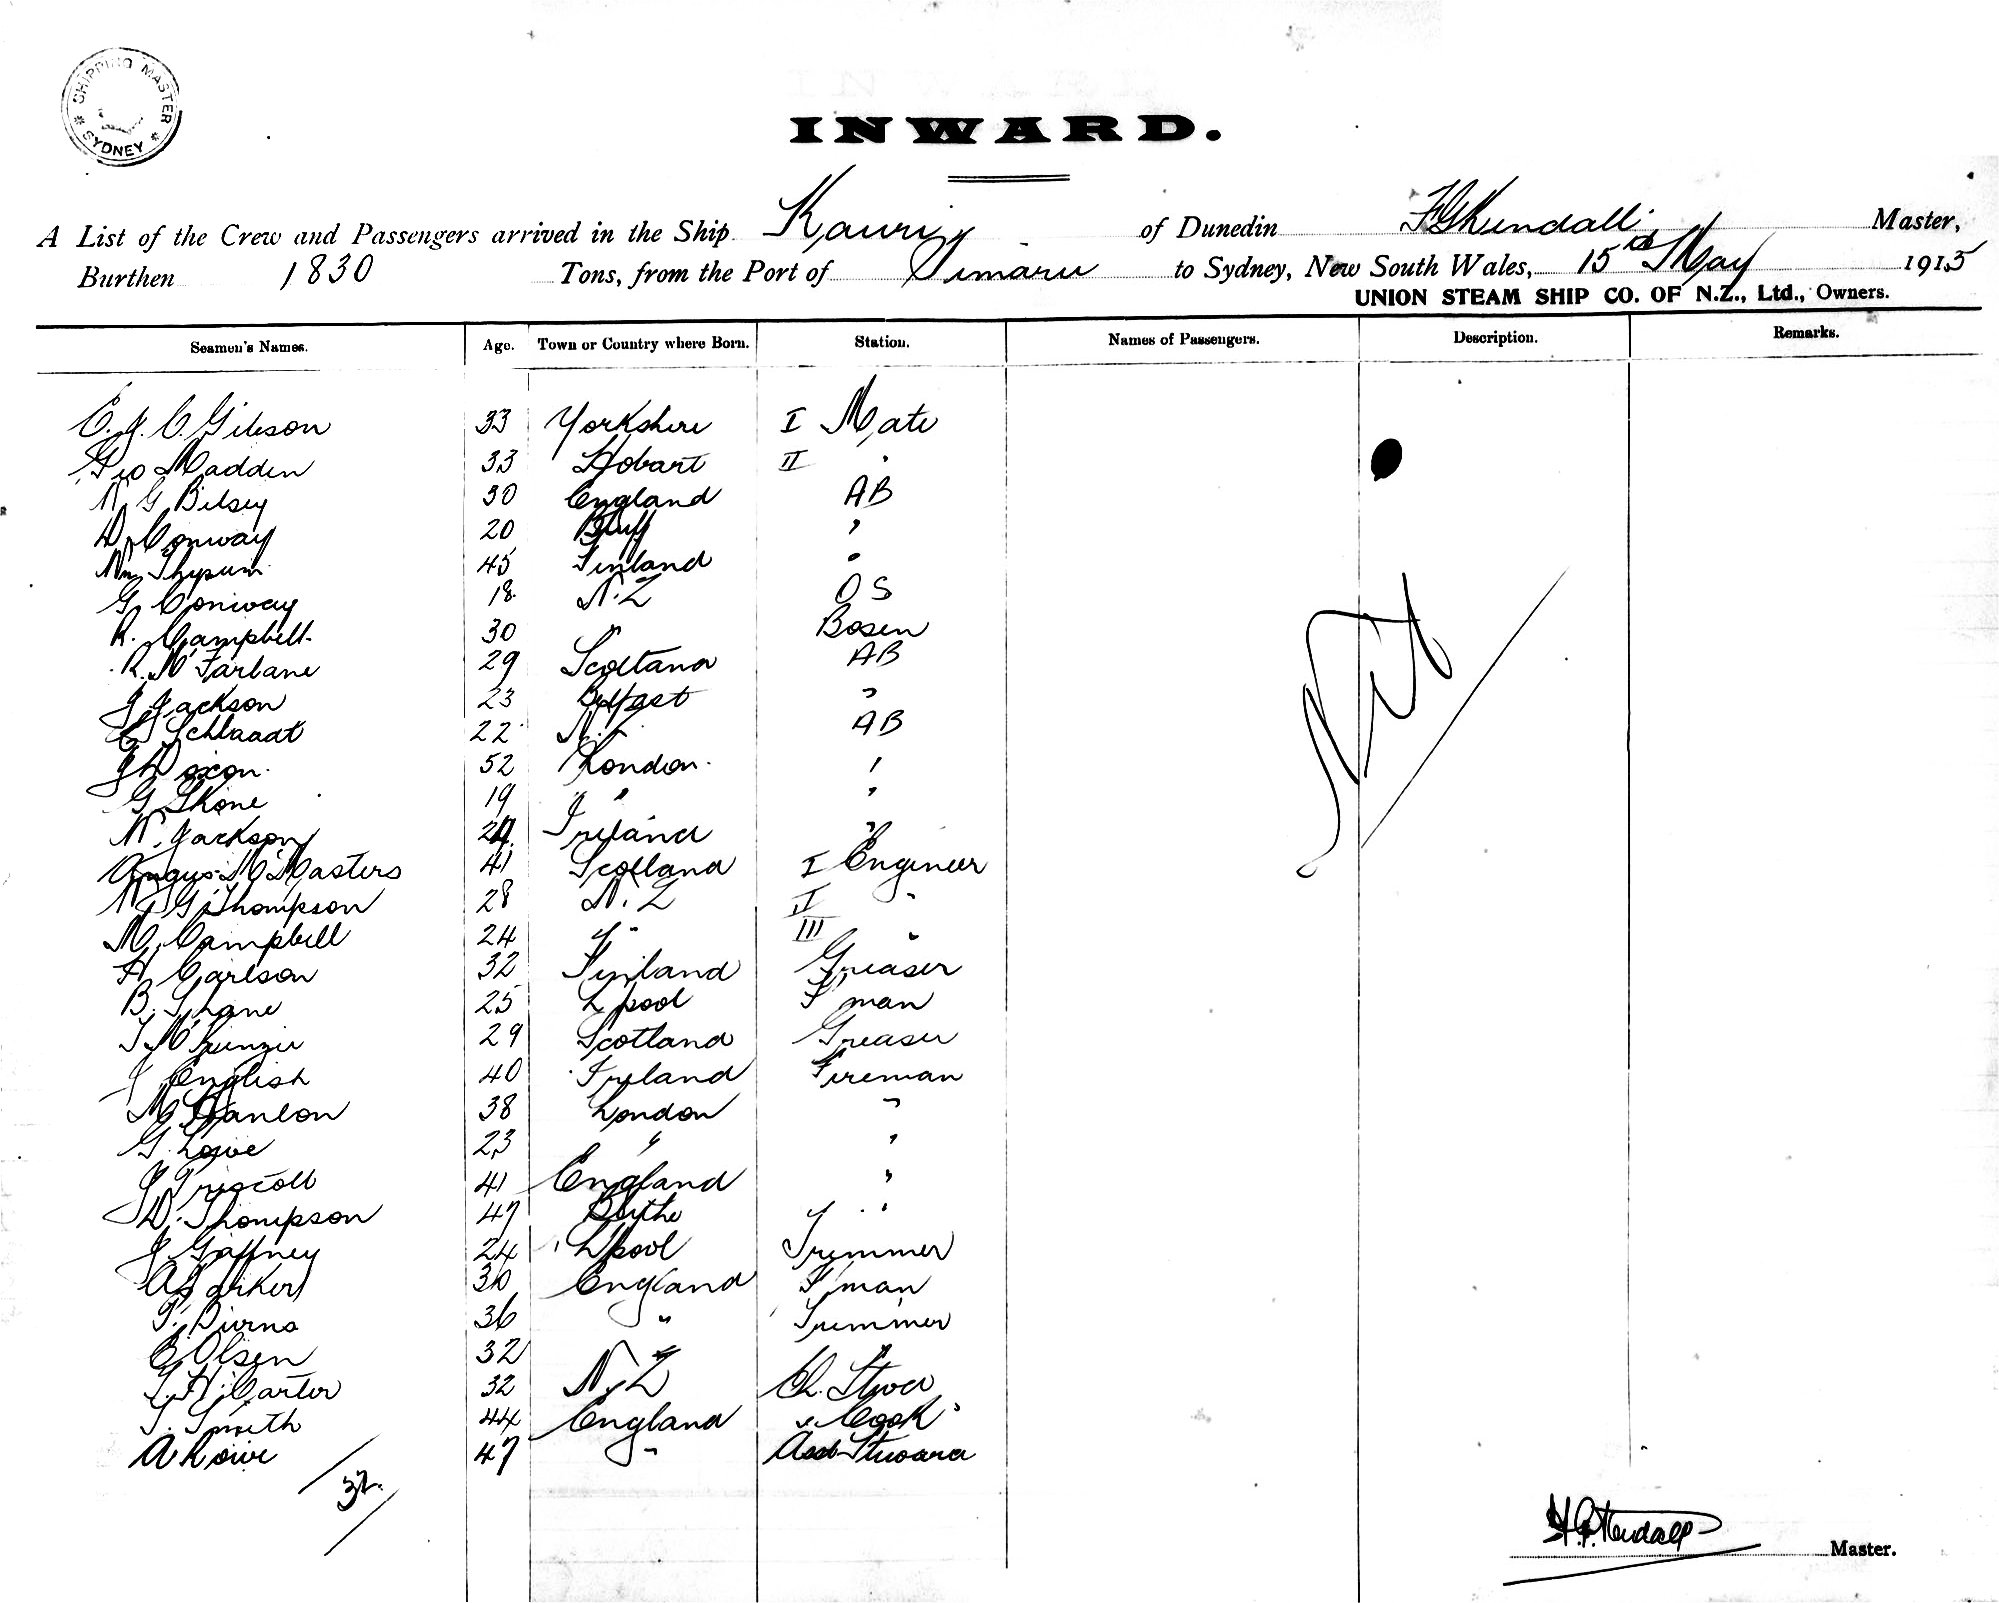 SHIPPING MASTER SYDNEY
INWARD.
A List of the Crew and Passengers arrived in the Ship Kauri of Dunedin Kendall Master,
Burthen 1830 Tons, from the Port of Timaru to Sydney, New South Wales, 15th May 1915
UNION STEAM SHIP CO. OF N.Z., Ltd., Owners.
Seamen's Names. Age. Town or Country where Born. Station. Names of Passengers. Description. Remarks.
E. J. C. Gibson 33 Yorkshire I Mate
Geo Madden 33 Hobart II "
W G Bilsey 30 England AB
D. Conway 20 Bluff "
Wm 45 Finland "
G. Conway 18 N.Z OS
R. Campbell 30 " Bosen
R. McFarlane 29 Scotland AB
J Jackson 23 Belfast "
C Schlaadt 22 N.Z AB
J Dixon 52 London "
G Skone 19 " "
W. Jackson 24 Ireland "
Angus McMasters 41 Scotland I Engineer
W G Thompson 28 N.Z II "
M. Campbell 24 " III "
H. Carlson 32 Finland Greaser
B. Shane 25 L'pool F'man
T McKenzie 29 Scotland Greaser
J English 40 Ireland Fireman
M Hanlon 38 London "
G. Lowe 23 " "
J Triscott 41 England "
D. Thompson 47 Blythe "
J Gaffney 24 L'pool Trimmer
A Parker 30 England F'man
P. Burns 36 " Trimmer
E Olsen 32 "
T. H. Carter 32 N.Z Ch. Stwd
T. Smith 44 England " Cook
A Lowe 47 " Asst Steward
32
Nil
Kendall Master.